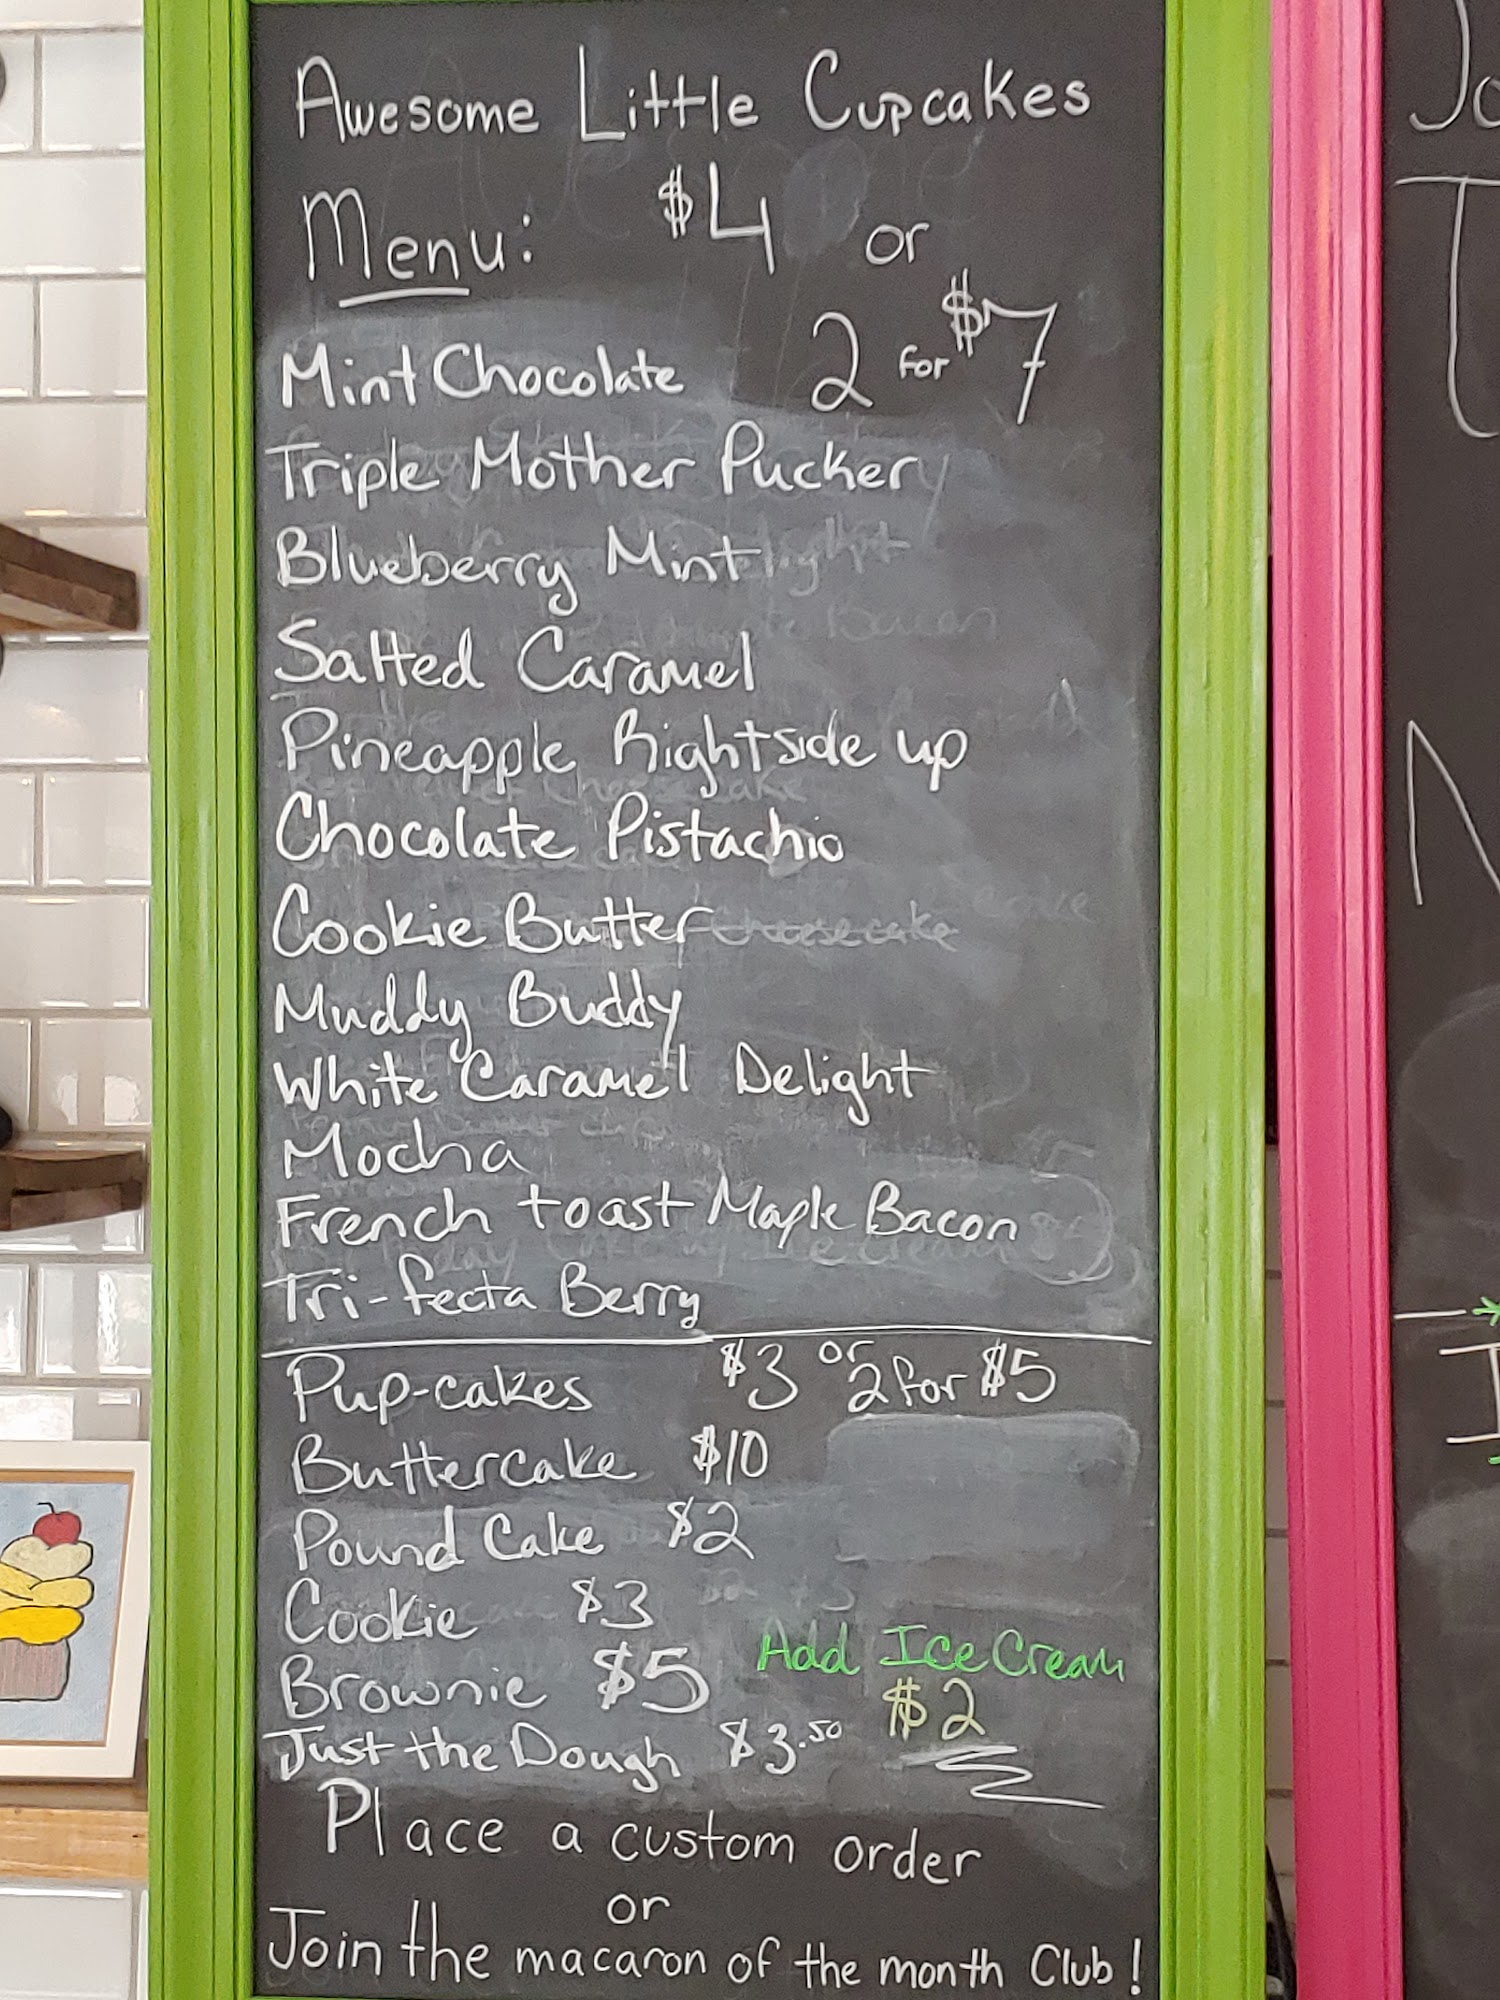 Awesome Little Cupcakes
Menu: $4 or
2 for $7
Mint Chocolate
Triple Mother Pucker
Blueberry Mint
Salted Caramel
Pineapple Rightside up
Chocolate Pistachio
Cookie Butter
Muddy Buddy
White Caramel Delight
Mocha
French toast Maple Bacon
Tri-fecta Berry
Pup-cakes $3 or 2 for $5
Buttercake $10
Pound Cake $2
Cookie $3
Add Ice Cream
Brownie $5
$2
Just the Dough $3.50
Place a custom order
or
Join the macaron of the month Club!